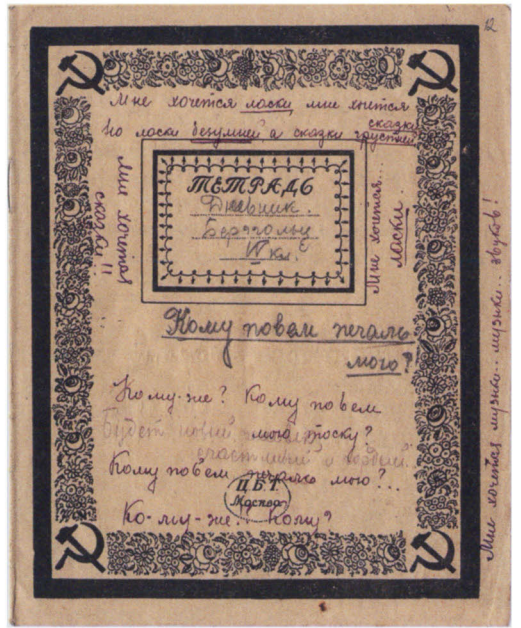 12
Мне хочется ласки, мне хочется сказки
Но ласки безумней а сказки грустней
Мне хочется сказки!!
ТЕТРАДЬ
Дневник
Берггольц
IV кл.
Мне хочется... ласки.
Кому повем печаль
мою?
Кому-же? Кому повем
Будет новый
мою тоску?
счастливый и бодрый..
Кому повем печаль мою?...
Ц.Б.Т.
Москва
Ко-му-же.. Кому?
Мне хочется музыки.. музыки... звуков!